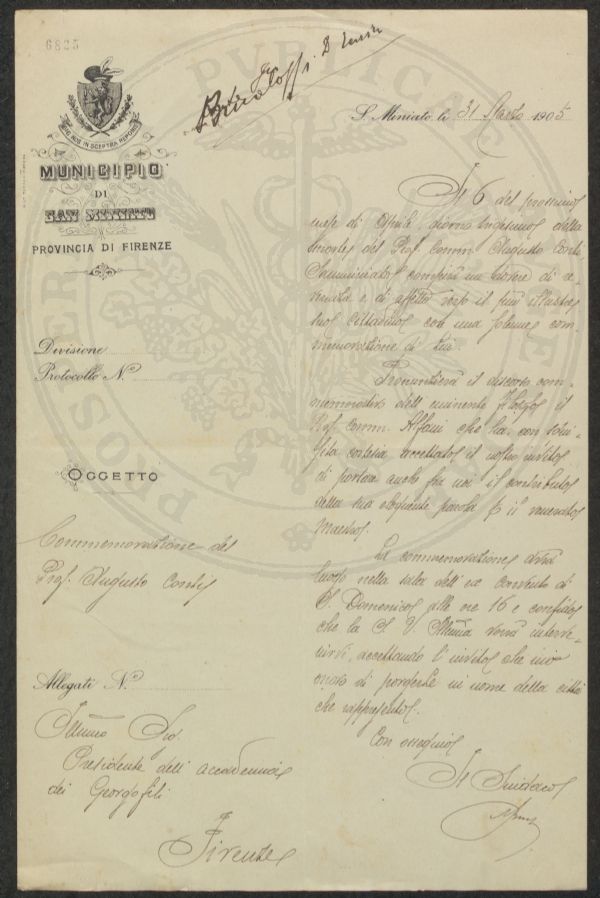 6825
S. Miniato li 31 Marzo 1905
SIC NOS IN SCEPTRA REPONIS
MUNICIPIO
DI
SAN MINIATO
PROVINCIA DI FIRENZE
Divisione
Protocollo N.º
OGGETTO
Commemorazione del
Prof. Augusto Conti
Allegati N.º
Illmo Sig.
Presidente dell'accademia
dei Georgofili
Firenze
Il 6 del prossimo
mese di Aprile, giorno trigesimo della
morte del Prof. Comm. Augusto Conti
Sanminiato compirà un dovere di re-
verenza e di affetto verso il più illustre
suo cittadino con una solenne com-
memorazione di Lui.
Pronunzierà il discorso com-
memorativo dell'eminente filosofo il
Prof. Comm. Alfani che ha con squi-
sita cortesia accettato il nostro invito
di portare anche fra noi il contributo
della sua eloquente parola p il venerato
Maestro.
La commemorazione avrà
luogo nella sala dell'ex Convento di
S. Domenico alle ore 16 e confido
che la S. V. Illma vorrà interve-
nirvi, accettando l'invito che mi
onoro di porgerle in nome della città
che rappresento.
Con ossequio
Il Sindaco